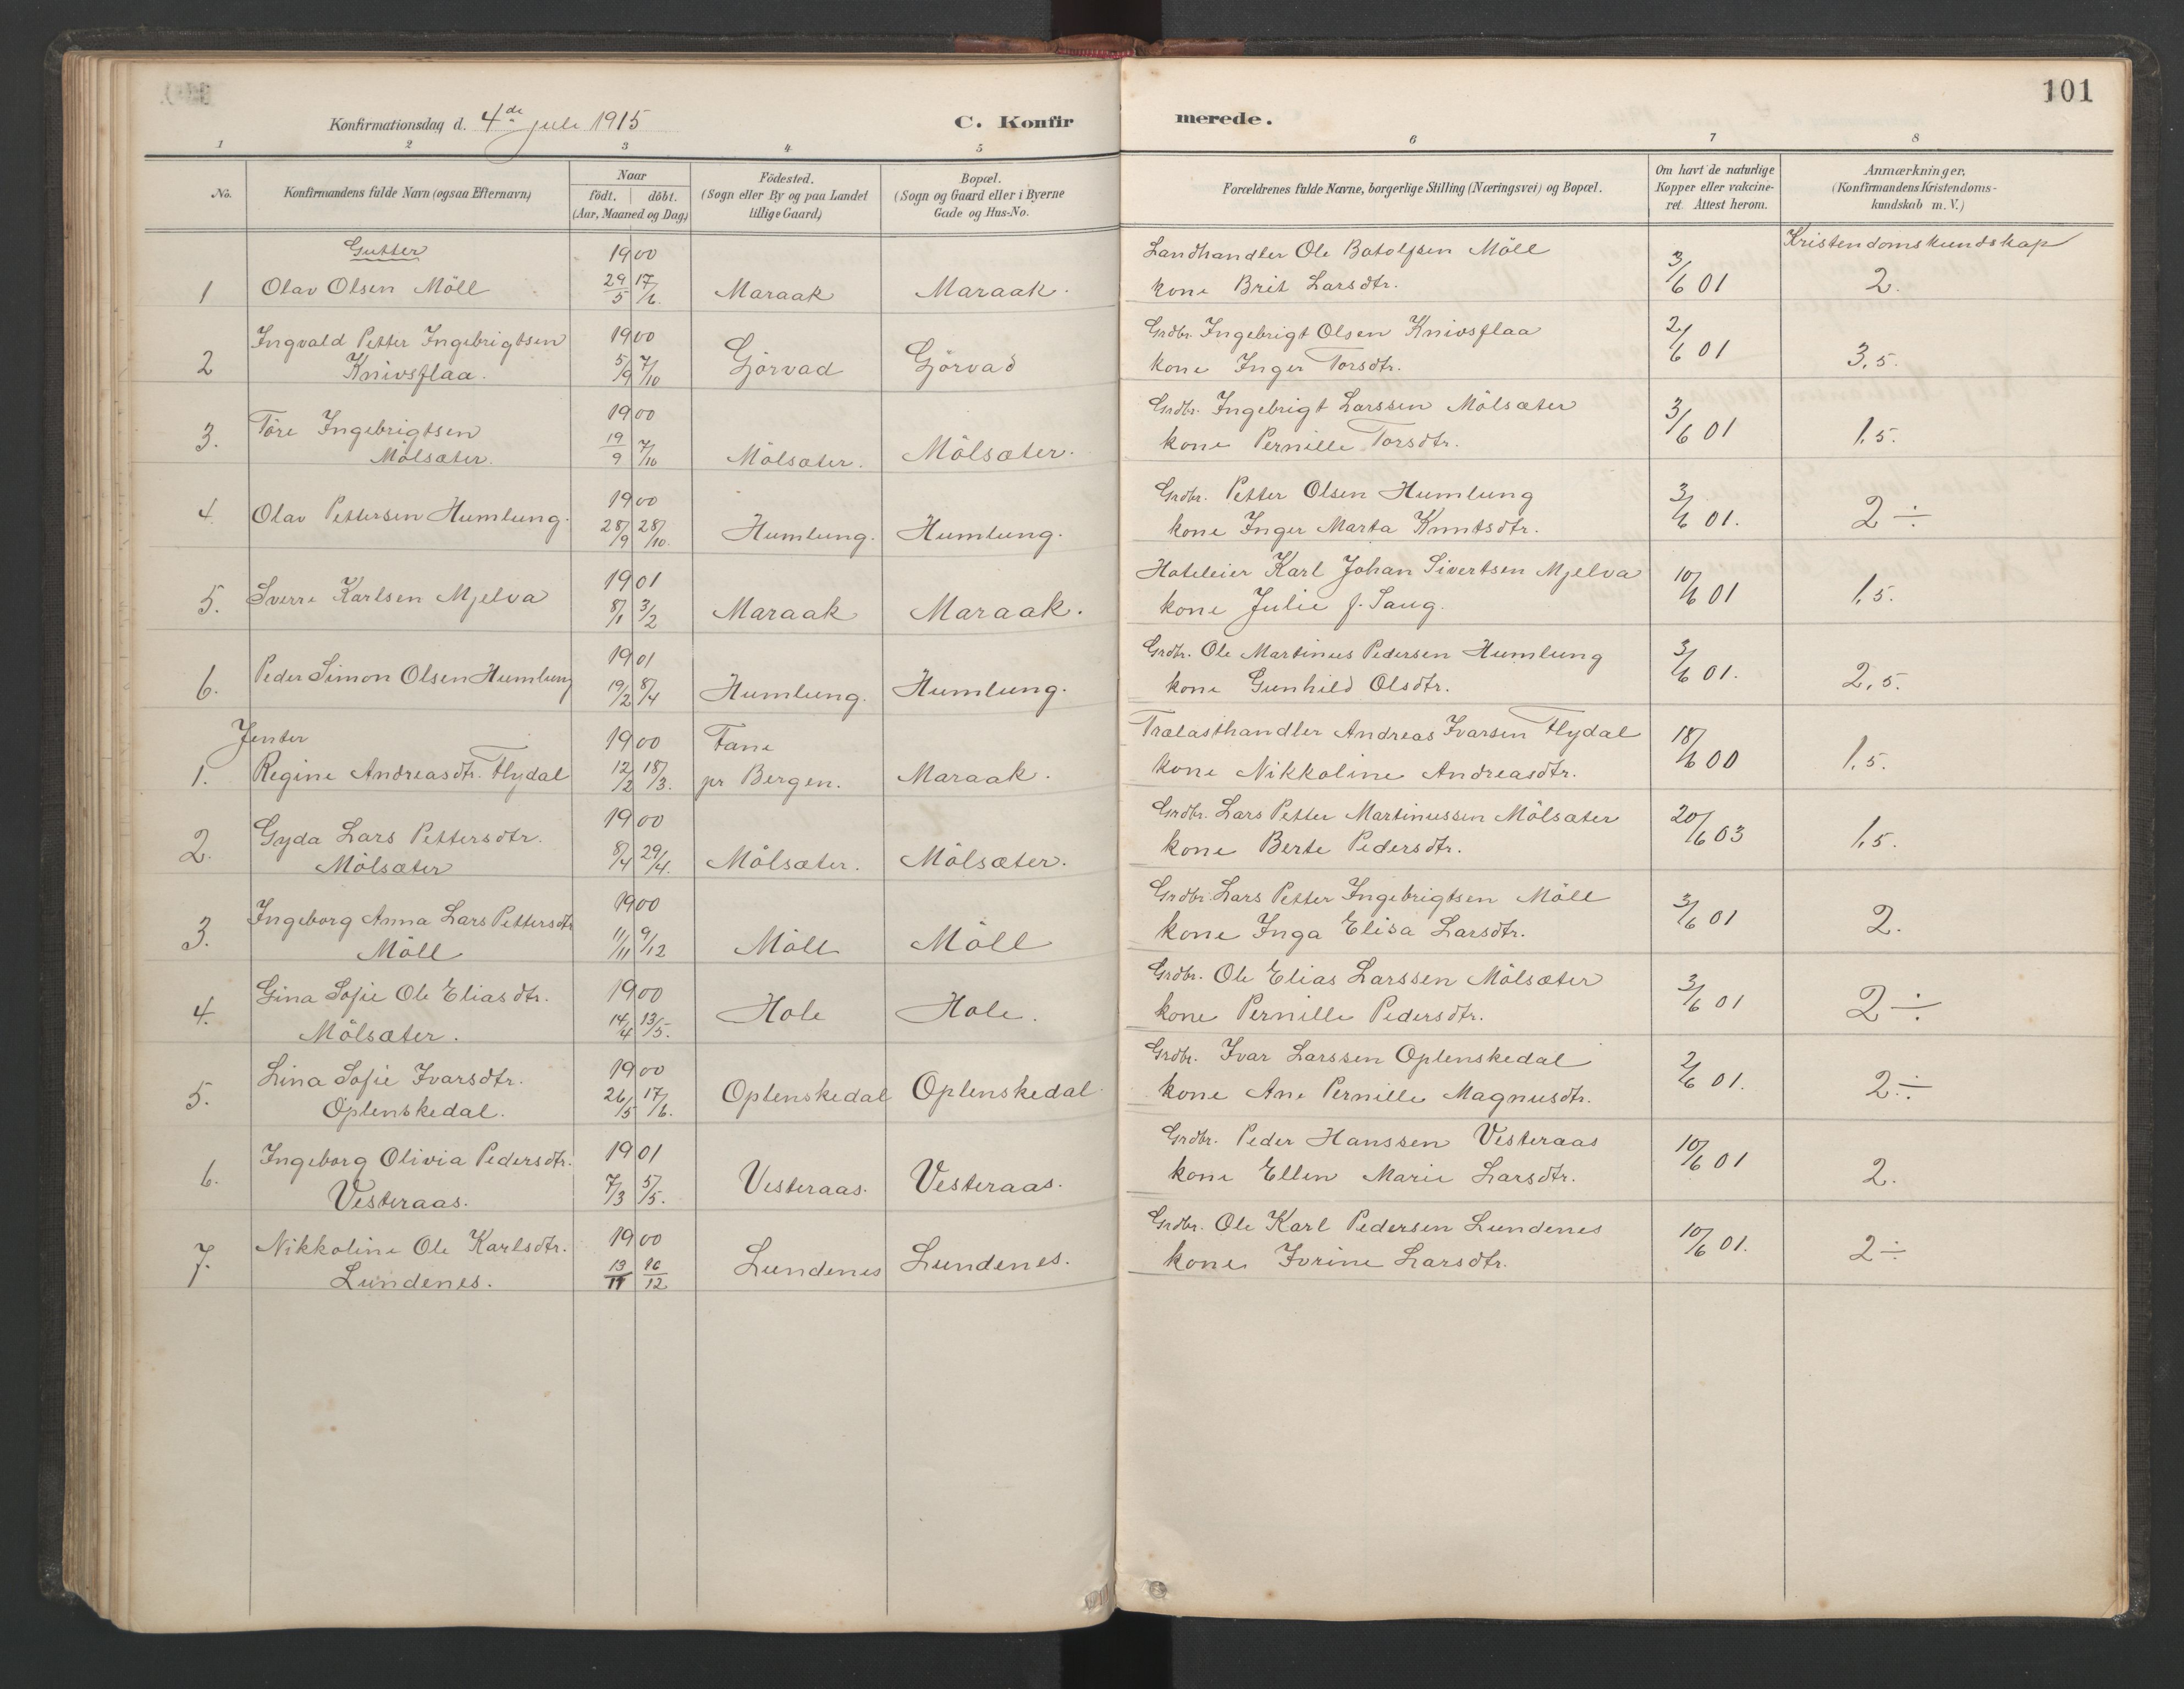 101
Konfirmationsdag d. 4de juli 1915
C. Konfirmerede.
1 2 3 4 5 6 7 8
No. | Konfirmandens fulde Navn (ogsaa Efternavn) | Naar födt. döbt. (Aar, Maaned og Dag.) | Födested. (Sogn eller By og paa Landet tillige Gaard.) | Bopæl. (Sogn og Gaard eller i Byerne Gade og Hus-No. | Forældrenes fulde Navne, borgerlige Stilling (Næringsvei) og Bopæl. | Om havt de naturlige Kopper eller vakcineret. Attest herom. | Anmærkninger, (Konfirmandens Kristendomskundskab m. V.)
Gutter | Kristendomskundskap
1 | Olav Olsen Möll | 1900 29/5 17/6. | Maraak | Maraak. | Landhandler Ole Batolfsen Möll kone Brit Larsdtr. | 3/6 01 | 2.
2 | Ingvald Petter Ingebrigtsen Knivsflaa. | 1900 5/9 7/10 | Gjörvad | Gjörvad | Grdbr. Ingebrigt Olsen Knivsflaa kone Inger Torsdtr. | 2/6 01 | 3,5.
3. | Töre Ingebrigtsen Mölsæter. | 1900 19/9 7/10 | Mölsæter. | Mölsæter. | Grdbr. Ingebrigt Larssen Mölsæter kone Pernille Torsdtr. | 3/6 01 | 1,5.
4. | Olav Pettersen Humlung. | 1900 28/9 28/10. | Humlung. | Humlung. | Grdbr. Petter Olsen Humlung kone Inger Marta Knutsdtr. | 3/6 01. | 2 ÷
5. | Sverre Karlsen Mjelva | 1901 8/1 3/2 | Maraak | Maraak. | Hoteleier Karl Johan Sivertsen Mjelva kone Julie f. Saug. | 10/6 01 | 1,5.
6. | Peder Simon Olsen Humlung | 1901 19/2 8/4 | Humlung. | Humlung. | Grdbr. Ole Martinus Pedersen Humlung kone Gunhild Olsdtr. | 3/6 01. | 2,5.
Jenter
1. | Regine Andreasdtr. Flydal | 1900 12/2 18/3. | Fane pr Bergen. | Maraak. | Trælasthandler Andreas Ivarsen Flydal kone Nikkoline Andreasdtr. | 18/6 00 | 1,5.
2. | Gyda Lars Pettersdtr. Mölsæter | 1900 8/4 29/4. | Mölsæter. | Mölsæter. | Grdbr. Lars Petter Martinussen Mölsæter kone Berte Pedersdtr. | 20/6 03 | 1,5.
3. | Ingeborg Anna Lars Pettersdtr Möll | 1900 11/11 9/12 | Möll | Möll | Grdbr. Lars Petter Ingebrigtsen Möll kone Inga Elisa Larsdtr. | 3/6 01 | 2.
4. | Gina Sofie Ole Eliasdtr. Mölsæter. | 1900 14/4 13/5. | Hole | Hole. | Grdbr. Ole Elias Larssen Mölsæter kone Pernille Pedersdtr. | 3/6 01 | 2 ÷
5. | Lina Sofie Ivarsdtr. Oplenskedal. | 1900 26/5 17/6. | Oplenskedal | Oplenskedal. | Grdbr. Ivar Larssen Oplenskedal kone Ane Pernille Magnusdtr. | 2/6 01. | 2 ÷
6. | Ingeborg Olivia Pedersdtr. Vesteraas. | 1901 7/3 5/5. | Vesteraas. | Vesteraas. | Grdbr. Peder Hanssen Vesteraas kone Ellen Marie Larsdtr. | 10/6 01 | 2.
7. | Nikkoline Ole Karlsdtr. Lundenes. | 1900 13/11 16/12 | Lundenes | Lundenes. | Grdbr. Ole Karl Pedersen Lundenes kone Ivrine Larsdtr. | 10/6 01. | 2 ÷